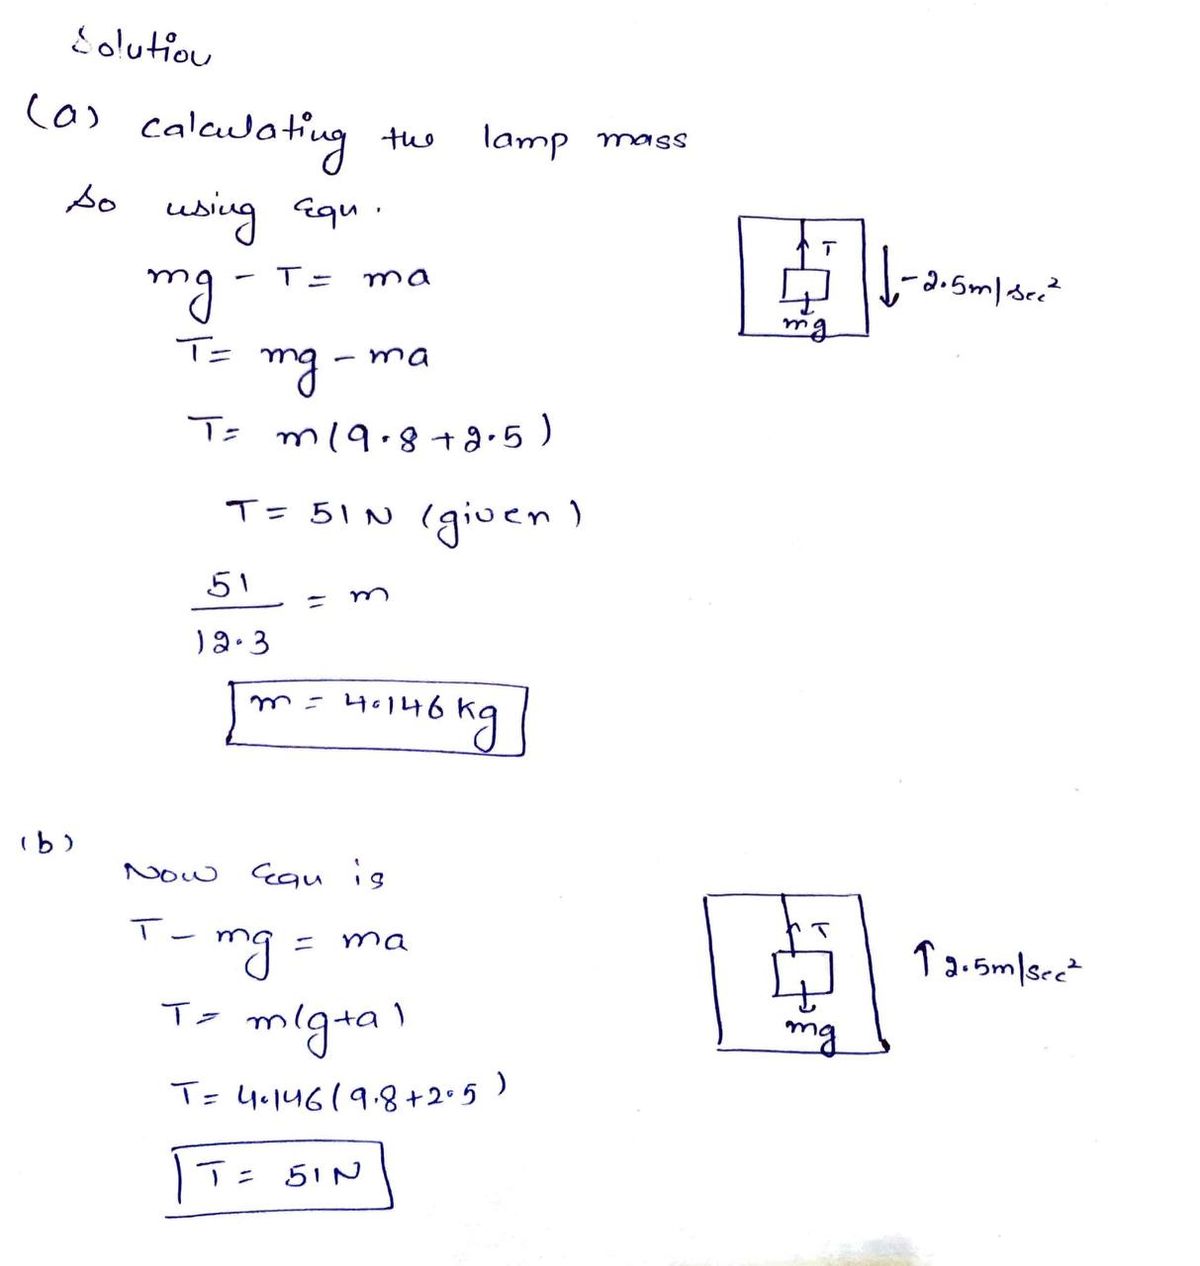 Solution
(a) calculating the lamp mass
so using equ.
mg - T = ma
T = mg - ma
T = m(9.8 + 2.5)
T = 51 N (given)
51
12.3
= m
m = 4.146 kg
T
mg
-2.5m/sec²
(b)
Now equ is
T - mg = ma
T = m(g+a)
T = 4.146(9.8+2.5)
T = 51 N
T
mg
2.5m/sec²